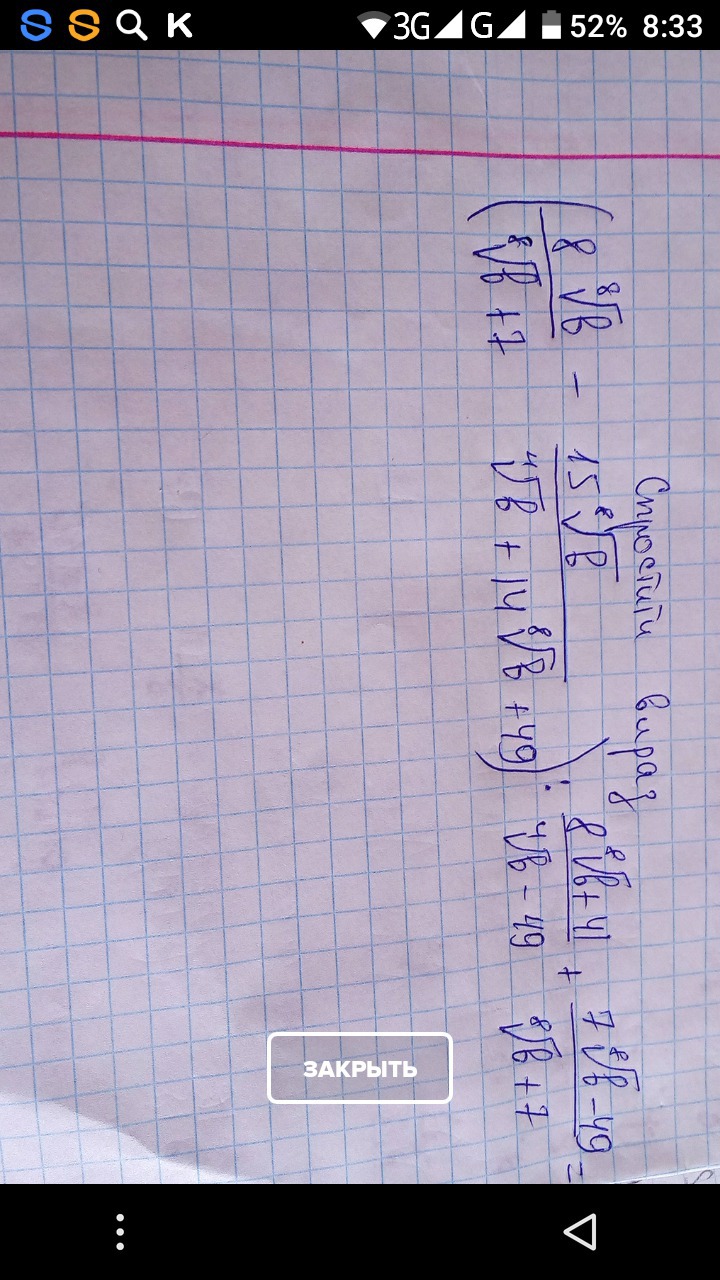 3G G 52% 8:33
Спростити вираз
(8 ⁸√b / (⁸√b + 7) − 15 ⁸√b / (⁴√b + 14 ⁸√b + 49)) : (8 ⁸√b + 41) / (⁴√b − 49) + (7 ⁸√b − 49) / (⁸√b + 7) =
ЗАКРЫТЬ